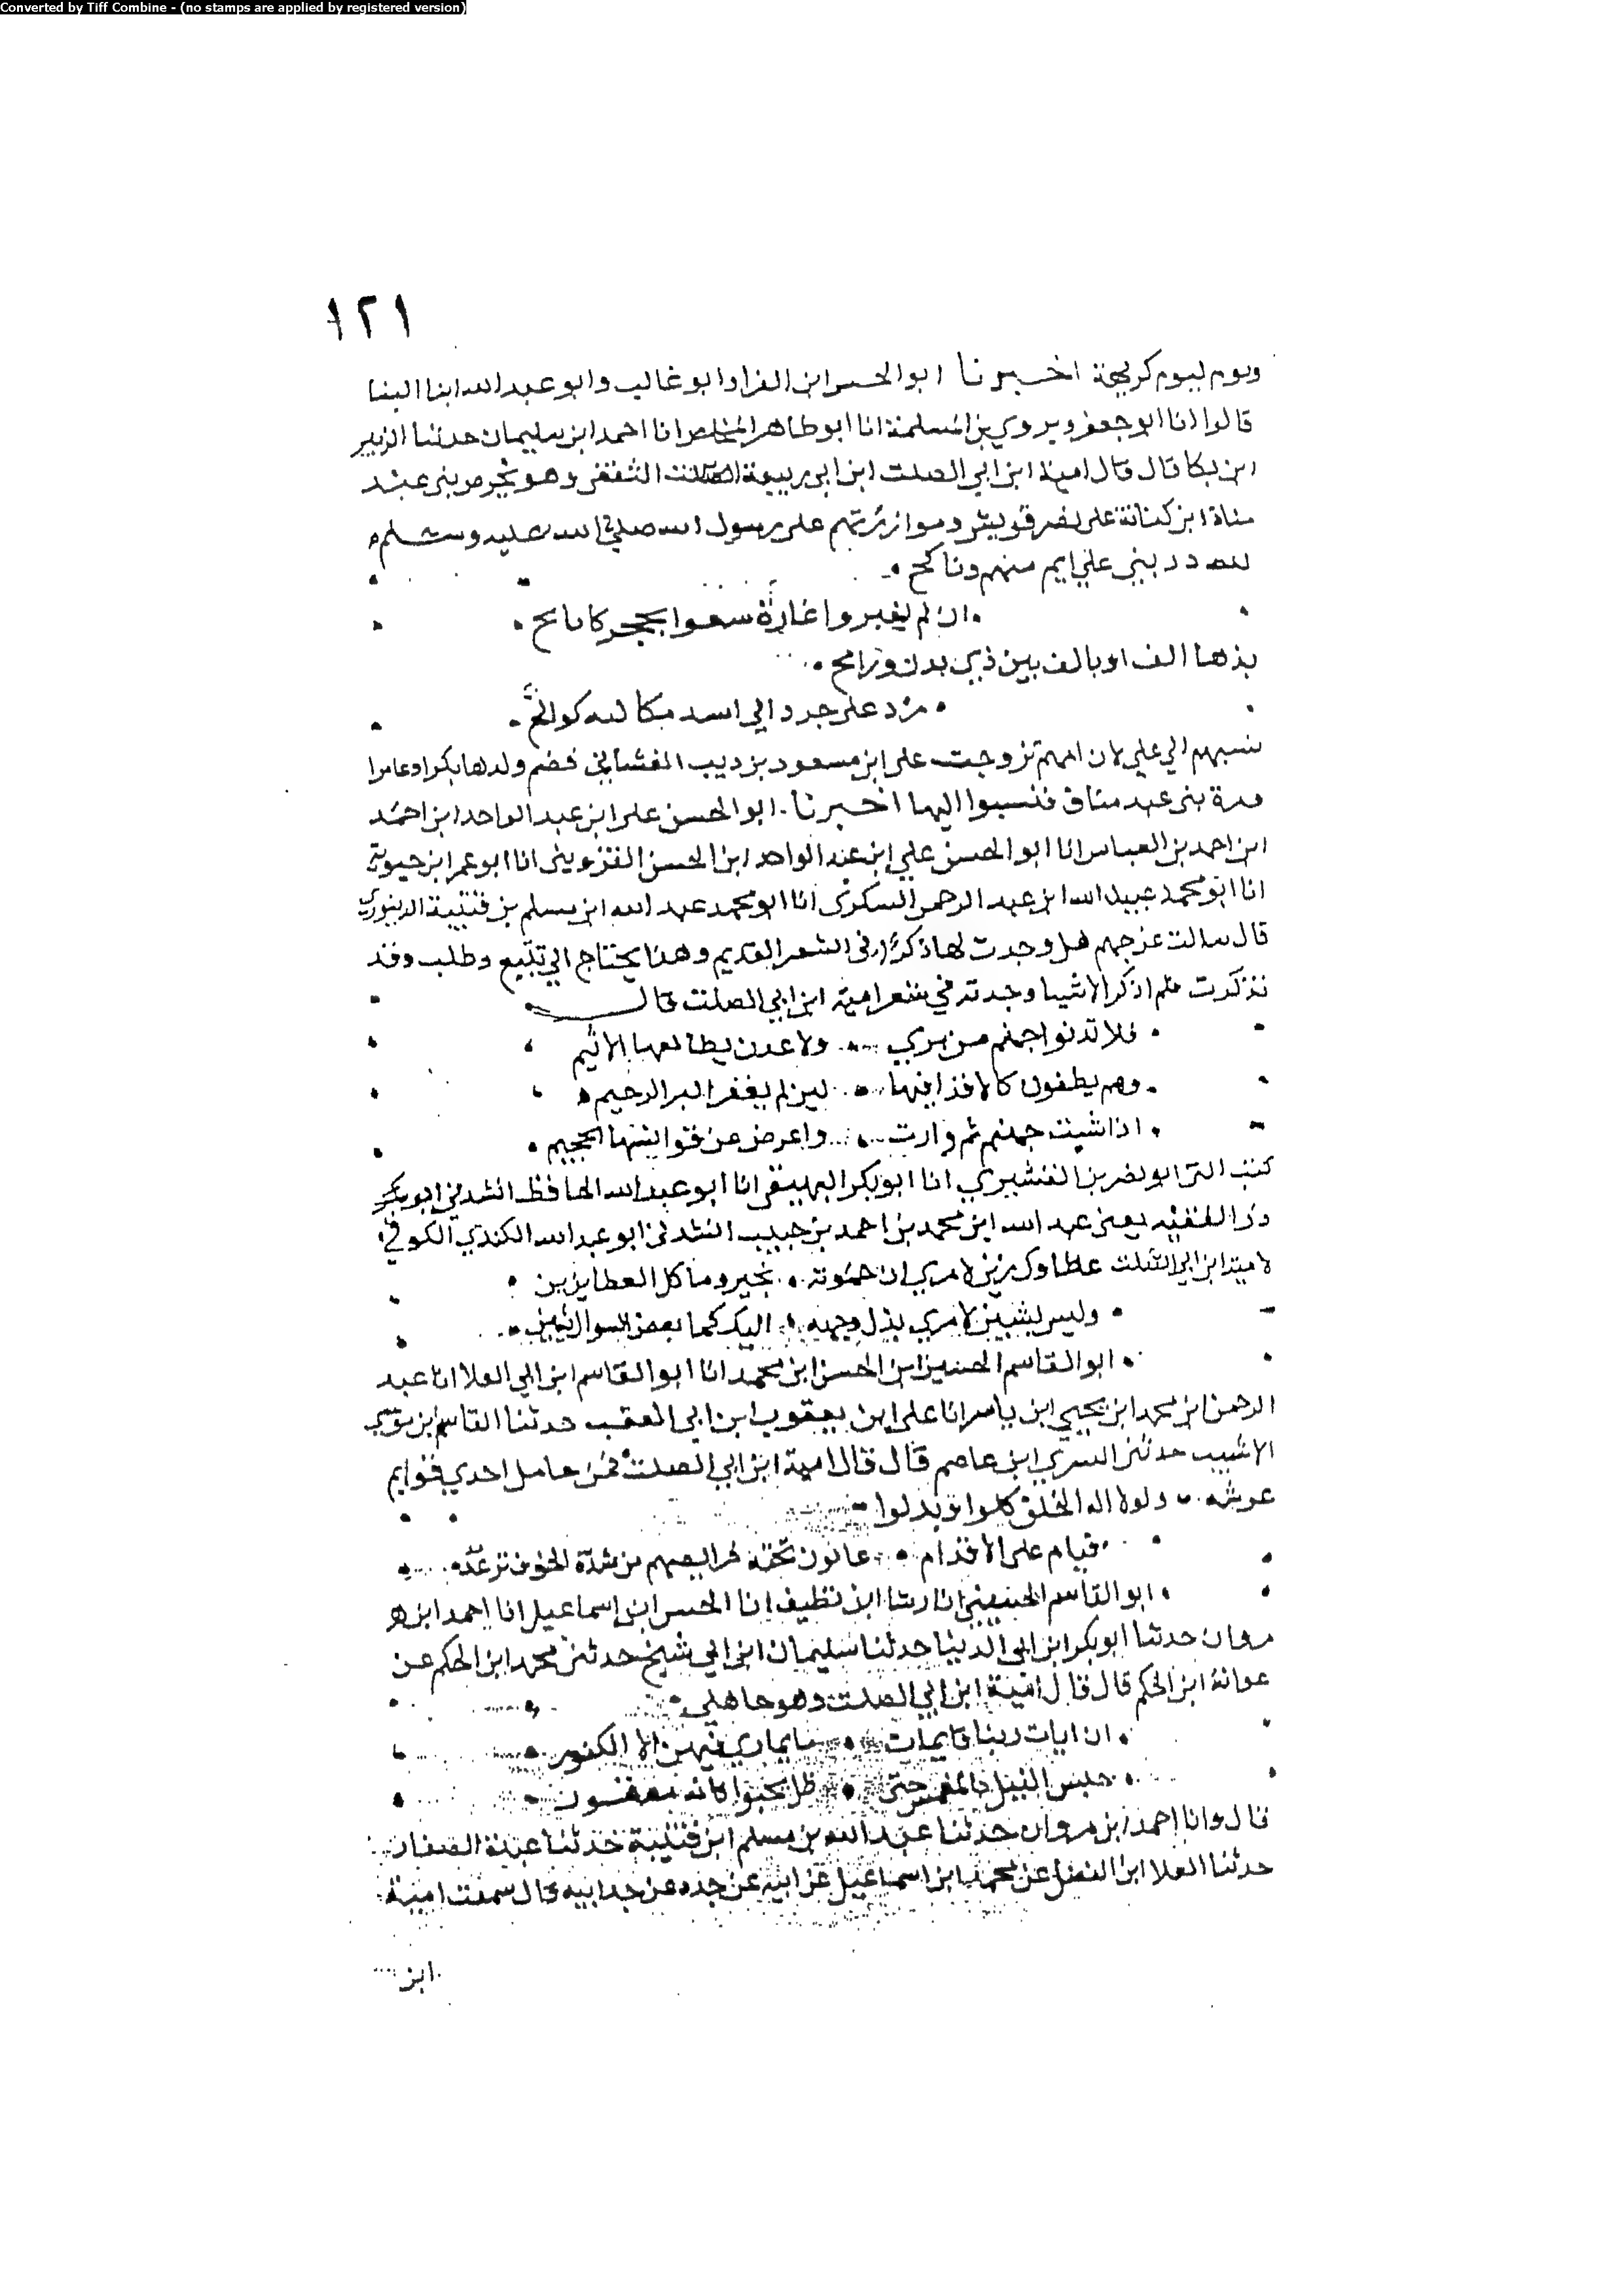 Converted by Tiff Combine - (no stamps are applied by registered version)
١٢١
ويوم ليوم كريهة اخبرنا ابو الحسن ابن الفرا وابو غالب وابو عبد الله ابنا البنا
قالوا انا ابو جعفر بن المسلمة انا ابو طاهر المخلص انا احمد ابن سليمان حدثنا الزبير
ابن بكا قال قال امية ابن ابي الصلت ابن ابي ربيعة الثقفي وهو يحرض بني عبد
مناة ابن كنانة على نصر قريش وموازرتهم على رسول الله صلى الله عليه وسلم
لله در بني علي ايم منهم وناكح
ان لم يغيروا غارة سعوا بحجر كابح
بذها الف او بالف بين ذي بدن ورامح
مزد على جرد الي اسد مكالبه كوالح
نسبهم الي علي لان امهم تزوجت على ابن مسعود بن ديب فضم ولدها بكرا وعامرا
ومرة بني عبد مناف فنسبوا اليها اخبرنا ابو الحسن على ابن عبد الواحد ابن احمد
ابن احمد بن العباس انا ابو الحسن علي ابن عبد الواحد ابن الحسن القزويني انا ابو عمر ابن حيوية
انا ابو محمد عبيد الله ابن عبد الرحمن السكري انا ابو محمد عبد الله ابن مسلم بن قتيبة الدينوري
قال سالت عن جهنم هل وجدت لها ذكرا في الشعر القديم وهذا يحتاج الي تتبع وطلب وقد
تذكرت فلم اذكر الا شيا وجدته في شعر امية ابن ابي الصلت قال
فلا تدنوا جهنم من بري ولا عدن يطالعها الاثيم
وهم يطفون كالاقذا فيها لين لم يغفر البر الرحيم
اذا شبت جهنم ثم وارت واعرض عن قوابسها الجحيم
كتب الي ابو نصر بن القشيري انا ابو بكر البهيقي انا ابو عبد الله الحافظ انشدني ابو بكر
يعني عبد الله ابن محمد بن احمد بن حبيب انشدني ابو عبد الله الكندي الكوفي
لامية ابن ابي الصلت عطاوك زين لامري ان حبوته بخير وما كل العطا يزين
وليس بشين لامري بذل وجهه اليك كما بعض السوال يشين
ابو القاسم الحسين ابن الحسن ابن محمد انا ابو القاسم ابن ابي العلا انا عبد
الرحمن ابن محمد ابن يحيي ابن ياسر انا على ابن يعقوب ابن ابي العقب حدثنا القاسم ابن موسي
الاشيب حدثني السري ابن عاصم قال قال امية ابن ابي الصلت فمن حامل احدي قوايم
عرشه ولولا اله الخلق كلوا وبدلوا
قيام على الاقدام عانون تحته فرايصهم من شدة الخوف ترعد
ابو القاسم الحسيني انا رشا ابن نظيف انا الحسن ابن اسماعيل انا احمد ابن مر
مروان حدثنا ابو بكر ابن ابي الدنيا حدثنا سليمان ابن ابي شيخ حدثني محمد ابن الحكم عن
عوانة ابن الحكم قال قال امية ابن ابي الصلت وهو جاهلي
ان ايات ربنا قايمات ما يماري فيهن الا الكفور
حبس الفيل بالمغمس حتى ظل يحبوا كانه معقور
قال وانا احمد ابن مروان حدثنا عبد الله بن مسلم ابن قتيبة حدثنا عبدة الصفار
حدثنا العلا ابن الفضل عن محمد ابن اسماعيل عن ابيه عن جده عن جد ابيه قال سمعت امية
ابن